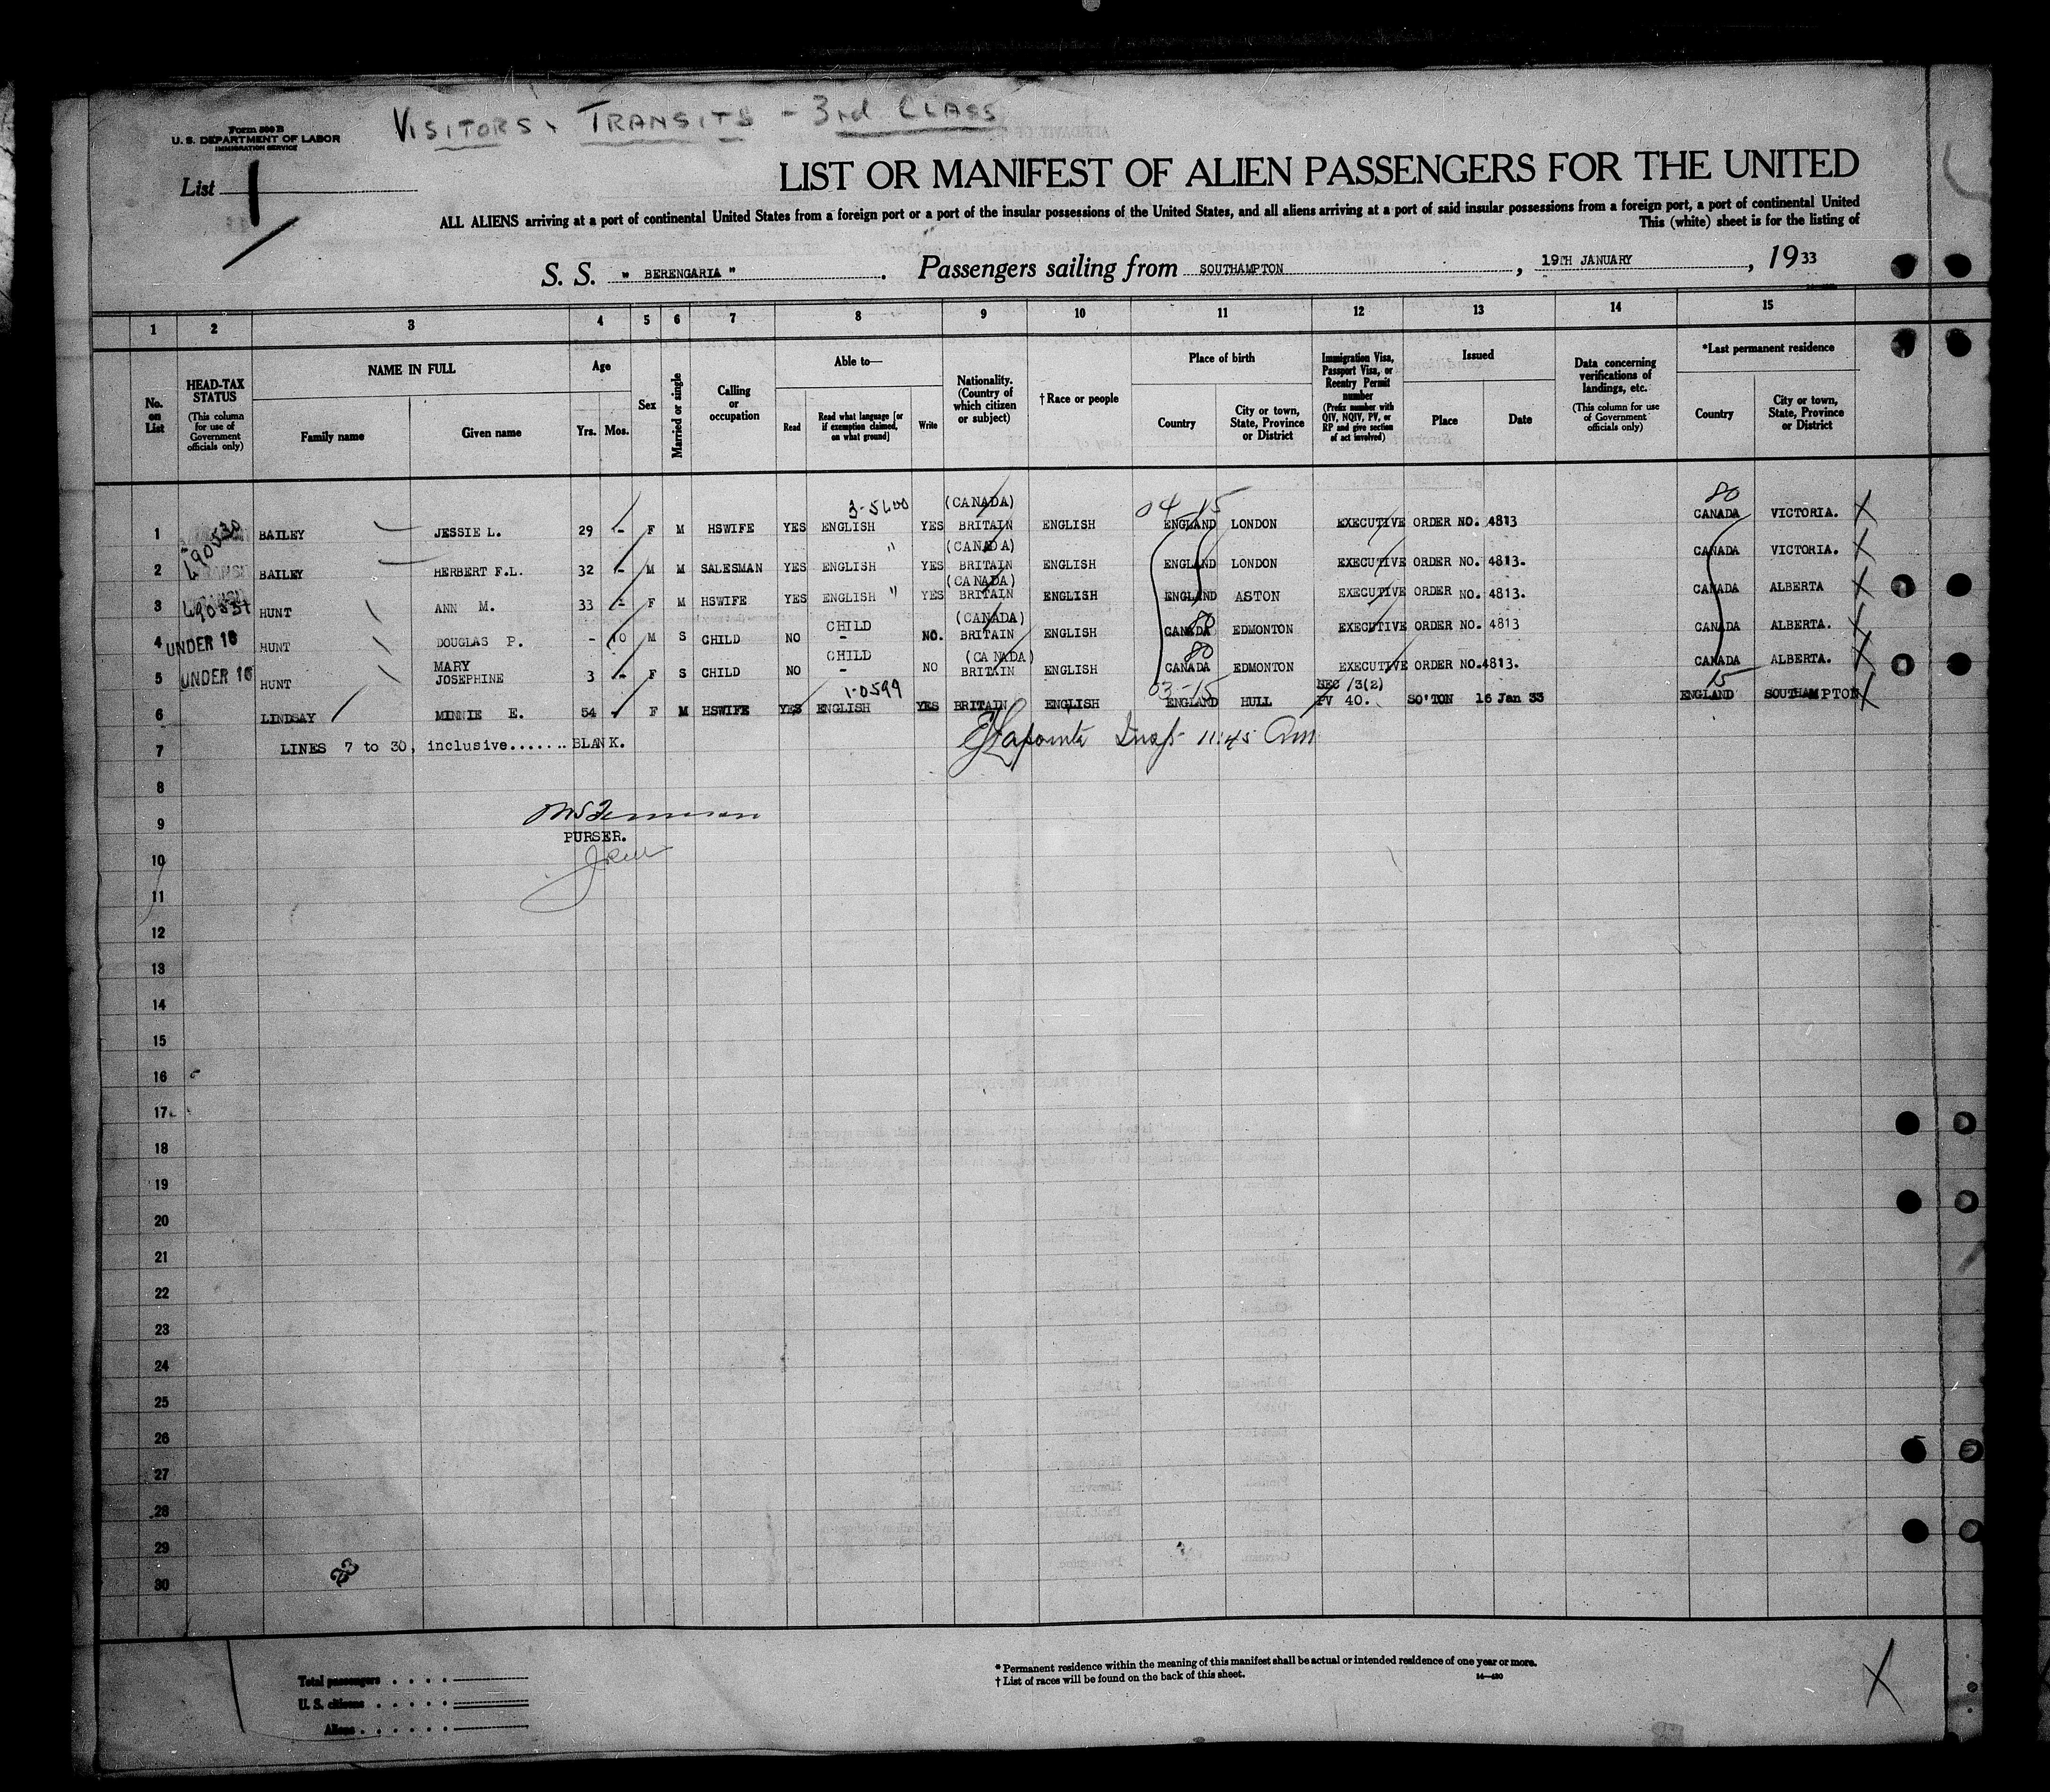 VISITORS, TRANSITS - 3rd CLASS
Form 500 B
U. S. DEPARTMENT OF LABOR
IMMIGRATION SERVICE
List 1
LIST OR MANIFEST OF ALIEN PASSENGERS FOR THE UNITED
ALL ALIENS arriving at a port of continental United States from a foreign port or a port of the insular possessions of the United States, and all aliens arriving at a port of said insular possessions from a foreign port, a port of continental United
This (white) sheet is for the listing of
S. S. " BERENGARIA ". Passengers sailing from SOUTHAMPTON, 19TH JANUARY, 1933
1 2 3 4 5 6 7 8 9 10 11 12 13 14 15
No. on List
HEAD-TAX STATUS
(This column for use of Government officials only)
NAME IN FULL
Family name
Given name
Age
Yrs. Mos.
Sex
Married or single
Calling or occupation
Able to—
Read
Read what language [or if exemption claimed, on what ground]
Write
Nationality. (Country of which citizen or subject)
† Race or people
Place of birth
Country
City or town, State, Province or District
Immigration Visa, Passport Visa, or Reentry Permit number
(Prefix number with QIV, NQIV, PV, or RP and give section of act involved)
Issued
Place
Date
Data concerning verifications of landings, etc.
(This column for use of Government officials only)
*Last permanent residence
Country
City or town, State, Province or District
3-5600 (CANADA) 04-15 80
1 BAILEY JESSIE L. 29 - F M HSWIFE YES ENGLISH YES BRITAIN ENGLISH ENGLAND LONDON EXECUTIVE ORDER NO. 4813 CANADA VICTORIA. X
" (CANADA)
2 BAILEY HERBERT F.L. 32 - M M SALESMAN YES ENGLISH YES BRITAIN ENGLISH ENGLAND LONDON EXECUTIVE ORDER NO. 4813. CANADA VICTORIA. X
(CANADA)
3 HUNT ANN M. 33 - F M HSWIFE YES ENGLISH " YES BRITAIN ENGLISH ENGLAND ASTON EXECUTIVE ORDER NO. 4813. CANADA ALBERTA X
CHILD (CANADA) 80
4 UNDER 16 HUNT DOUGLAS P. - 10 M S CHILD NO - NO. BRITAIN ENGLISH CANADA EDMONTON EXECUTIVE ORDER NO. 4813 CANADA ALBERTA. X
CHILD (CANADA) 80
5 UNDER 16 HUNT MARY JOSEPHINE 3 - F S CHILD NO - NO BRITAIN ENGLISH CANADA EDMONTON EXECUTIVE ORDER NO.4813. CANADA ALBERTA. X
1-0599 03-15 SEC /3(2) 15
6 LINDSAY MINNIE E. 54 - F M HSWIFE YES ENGLISH YES BRITAIN ENGLISH ENGLAND HULL PV 40. SO'TON 16 Jan 33 ENGLAND SOUTHAMPTON X
7 LINES 7 to 30, inclusive....... BLANK. Lapointe Insp 11:45 Am
8
9
PURSER.
10
11
12
13
14
15
16
17
18
19
20
21
22
23
24
25
26
27
28
29
30
Total passengers
U. S. citizens
Aliens
* Permanent residence within the meaning of this manifest shall be actual or intended residence of one year or more.
† List of races will be found on the back of this sheet.
14—420
X